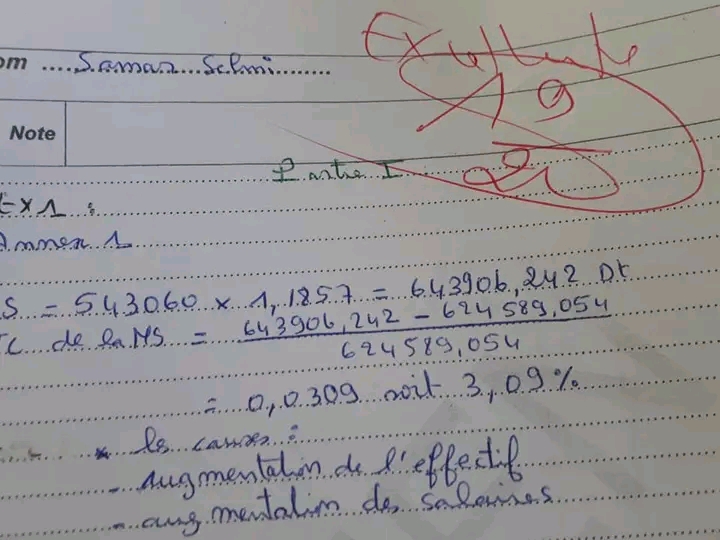 Excellente
om ....Samar Selmi........
19
20
Note
Partie I
Ex1 :
Annex 1
S = 543060 x 1,1857 = 643906,242 Dt
TC de la MS = 643906,242 - 624589,054
624589,054
= 0,0309 soit 3,09%
* les causes :
- augmentation de l'effectif
- augmentation des salaires